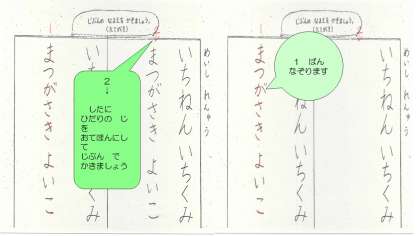 じぶんの なまえを かきましょう。
(たてがき)
めいし れんしゅう
いちねん いちくみ
まつがさき よいこ
2
↓
したに
ひだりの じ
を
おてほんにし
て
じぶん で
かきましょう
いち
くみ
まつがさき よいこ
1
じぶんの なまえを かきましょう。
(たてがき)
めいし れんしゅう
いちねん いちくみ
1 ばん
なぞります
ねん いちくみ
まつがさき よいこ